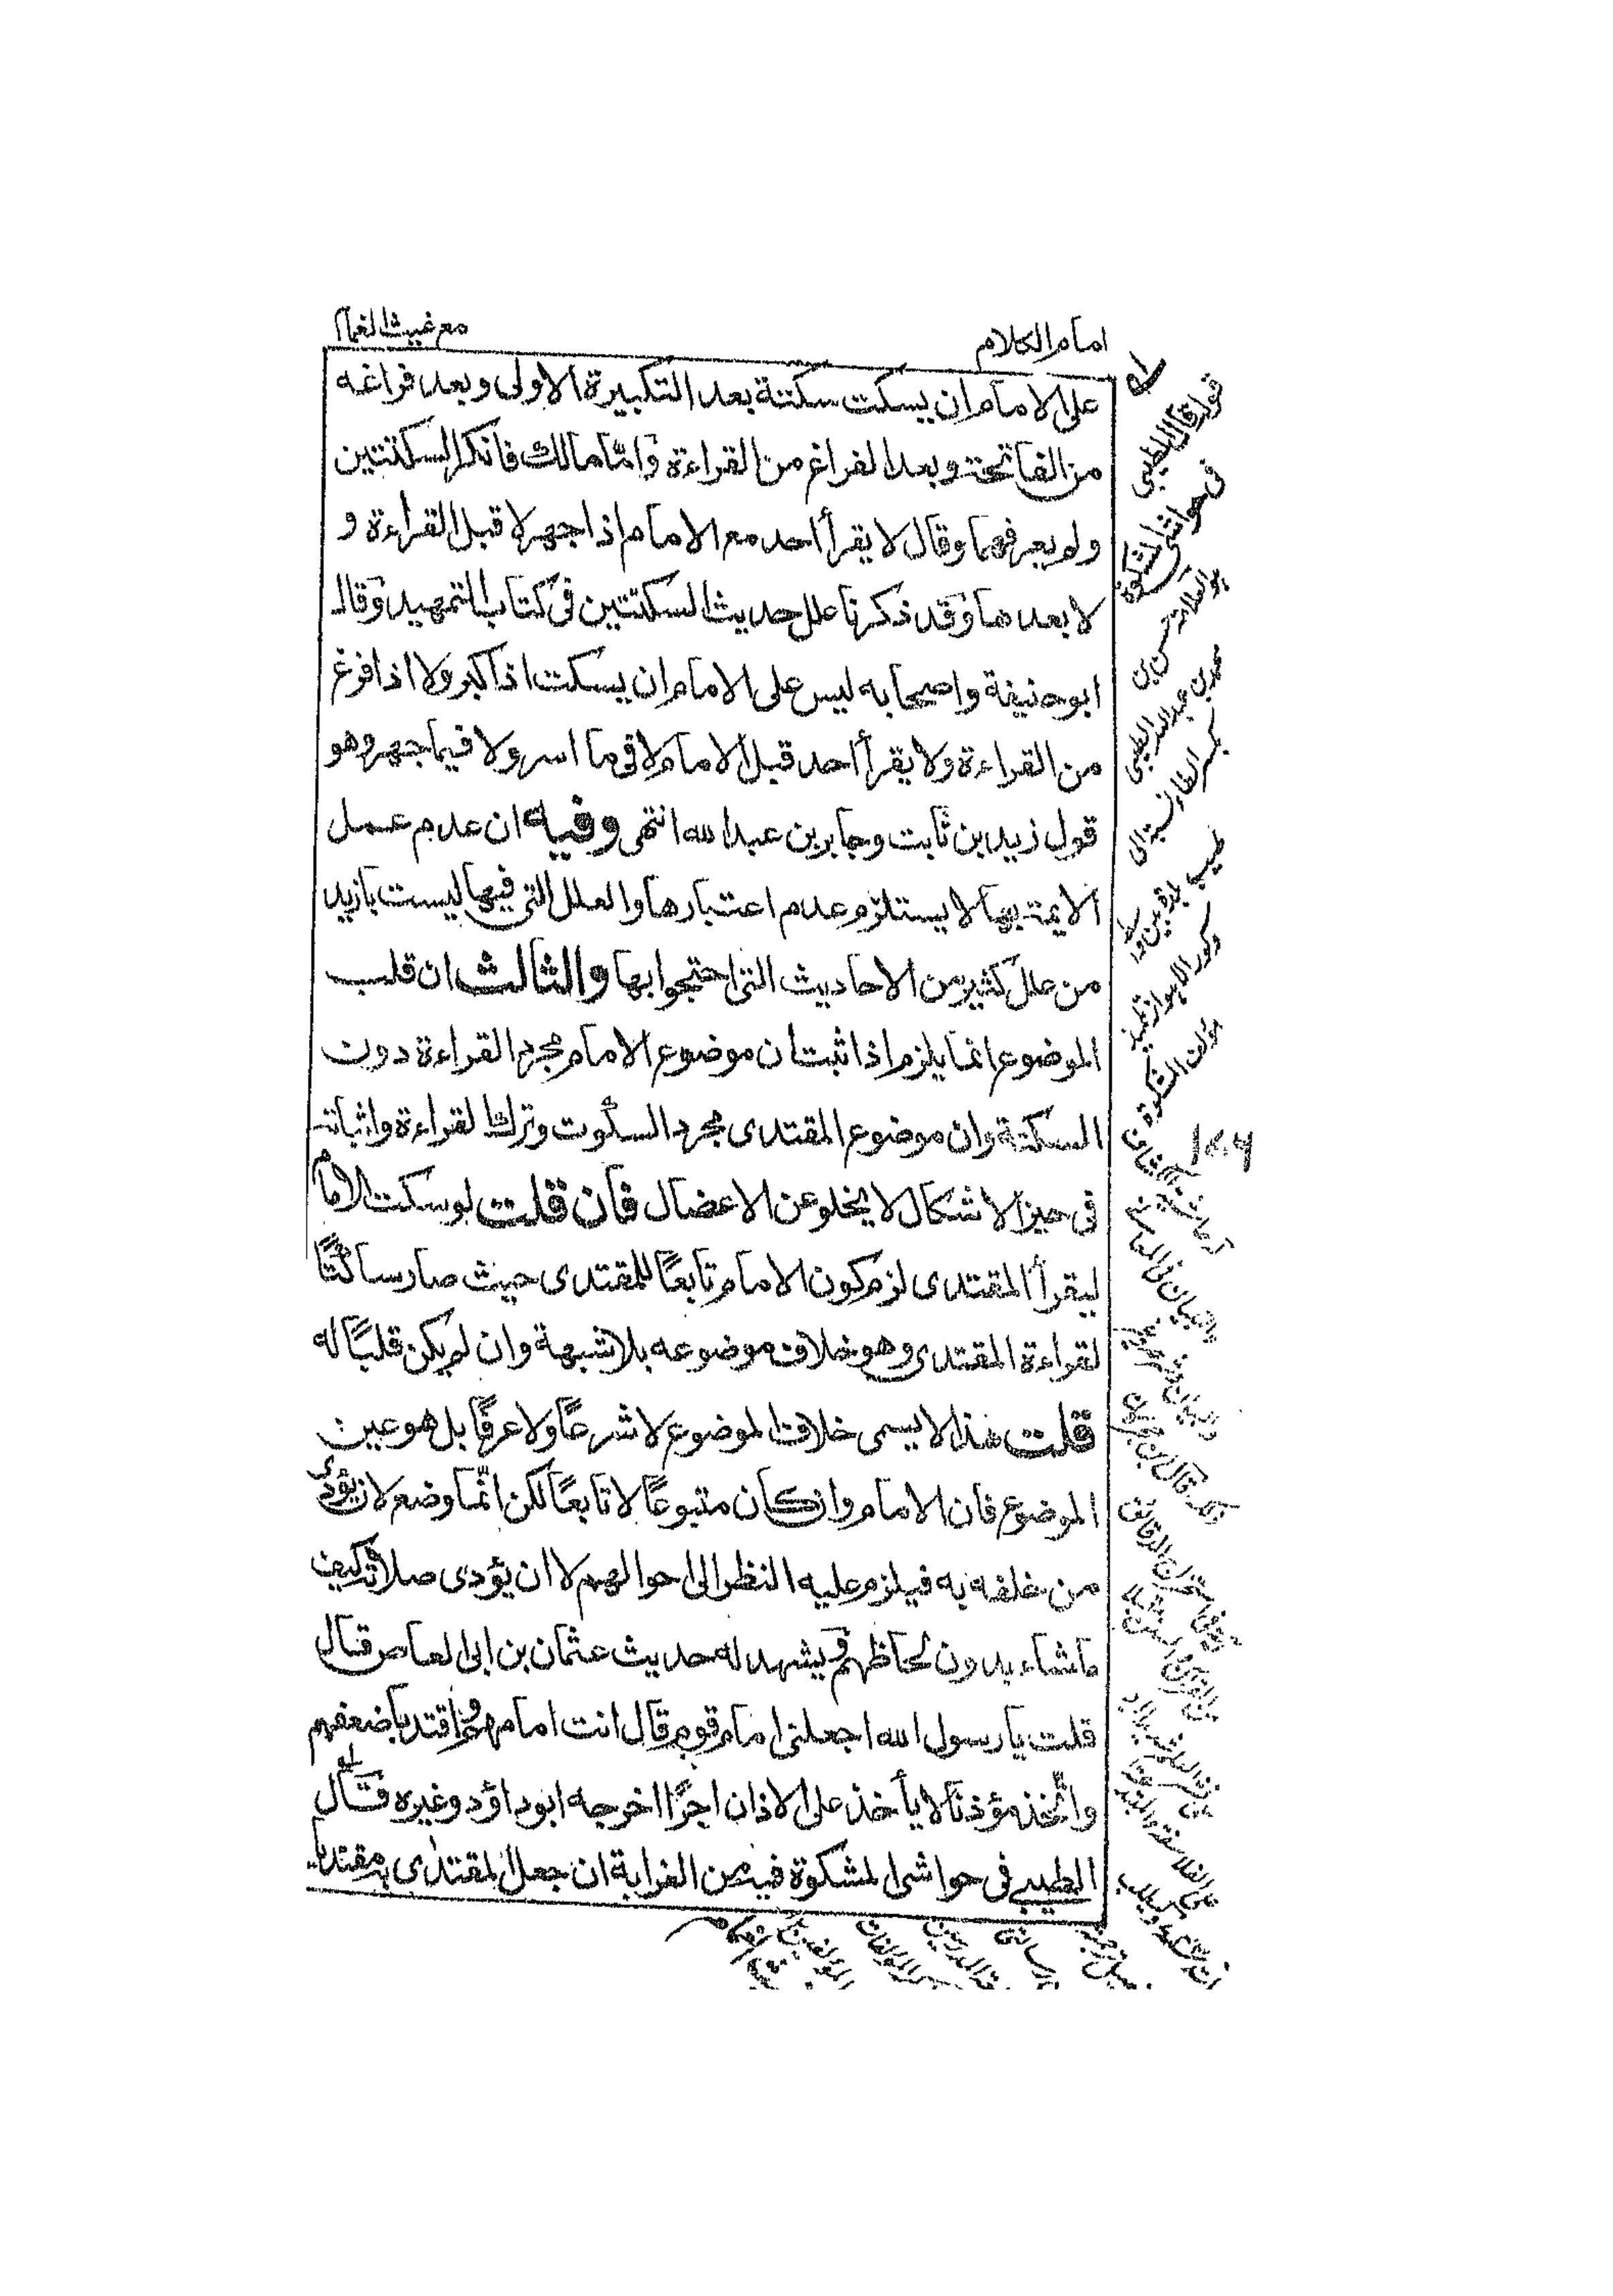 امام الكلام
مع غيث الغمام
على الامام ان يسكت سكتة بعد التكبيرة الاولى وبعد فراغه
من الفاتحة وبعد الفراغ من القراءة وامّا مالك فانكر السكتتين
ولم يعرفهما وقال لا يقرأ احد مع الامام اذا جهر لا قبل القراءة و
لا بعدها وقد ذكرنا علل حديث السكتتين فى كتاب التمهيد وقال
ابوحنيفة واصحابه ليس على الامام ان يسكت اذا كبر ولا اذا فرغ
من القراءة ولا يقرأ احد قبل الامام لا فى ما اسر ولا فيما جهر وهو
قول زيد بن ثابت وجابر بن عبد الله انتهى وفيه ان عدم عمل
الايمة بها لا يستلزم عدم اعتبارها والعلل التى فيها ليست بازيد
من علل كثير من الاحاديث التى احتجوا بها والثالث ان قلب
الموضوع انما يلزم اذا ثبت ان موضوع الامام مجرد القراءة دون
السكتة وان موضوع المقتدى مجرد السكوت وترك القراءة واثباته
فى حيز الاشكال لا يخلو عن الاعضال فان قلت لو سكت الامام
ليقرأ المقتدى لزم كون الامام تابعًا للمقتدى حيث صار ساكتًا
لقراءة المقتدى وهو خلاف موضوعه بلا شبهة وان لم يكن قلبًا له
قلت هذا لا يسمى خلاف الموضوع لا شرعًا ولا عرفًا بل هو عين
الموضوع فان الامام وان كان متبوعًا لا تابعًا لكن انّما وضع لان يؤدى
من خلفه به فيلزم عليه النظر الى احوالهم لا ان يؤدى صلاته كيف
ما شاء بدون لحاظهم ويشهد له حديث عثمان بن ابى العاص قال
قلت يا رسول الله اجعلنى امام قوم قال انت امامهم واقتد باضعفهم
واتّخذ مؤذنًا لا يأخذ على الاذان اجرًا اخرجه ابوداؤد وغيره قال
الطيبى فى حواشى المشكوة فيه من الغرابة ان جعل المقتدى به مقتديا
قوله قال الطيبى
فى حواشى المشكوة
هو العلامة حسن بن
محمد بن عبد الله الطيبى
بكسر الطاء نسبة الى
طيب بلدة بين واسط
وكور الاهواز تلميذ
مؤلف المشكوة